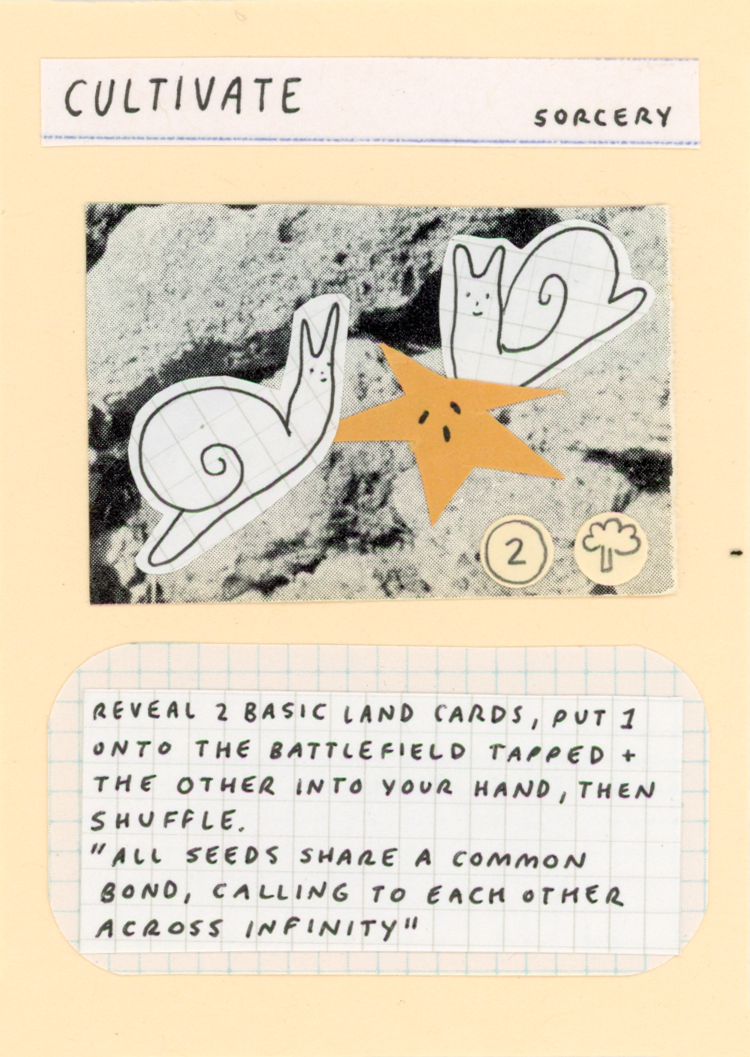 CULTIVATE
SORCERY
2
REVEAL 2 BASIC LAND CARDS, PUT 1
ONTO THE BATTLEFIELD TAPPED +
THE OTHER INTO YOUR HAND, THEN
SHUFFLE.
"ALL SEEDS SHARE A COMMON
BOND, CALLING TO EACH OTHER
ACROSS INFINITY"